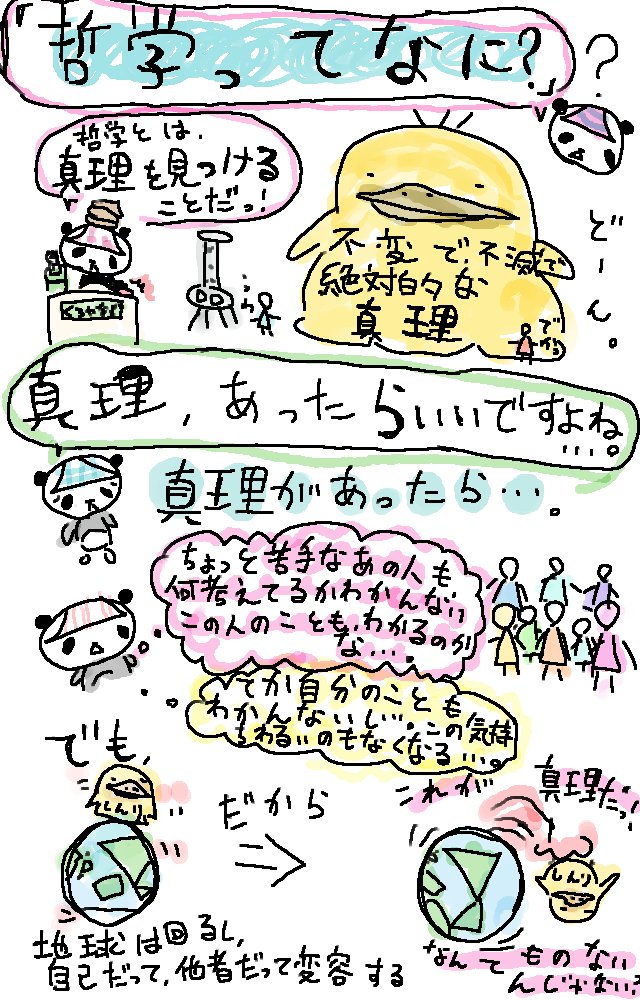 「哲学ってなに?」
?
哲学とは、
真理を見つける
ことだっ!
どーん。
不変で、不滅で
絶対的な
真理
で
真理,あったらいいですよね
…。
真理があったら…。
ちょっと苦手なあの人も
何考えてるかわかんない
この人のことも、わかるのか
な…。
てか自分のことも
わかんないし…この気持
ちわるいのもなくなる…。
でも、
しんり
だから
⇒
これが
真理だっ!
しんり
地球は回るし,
自己だって,他者だって変容する
なんてものない
んじゃない?